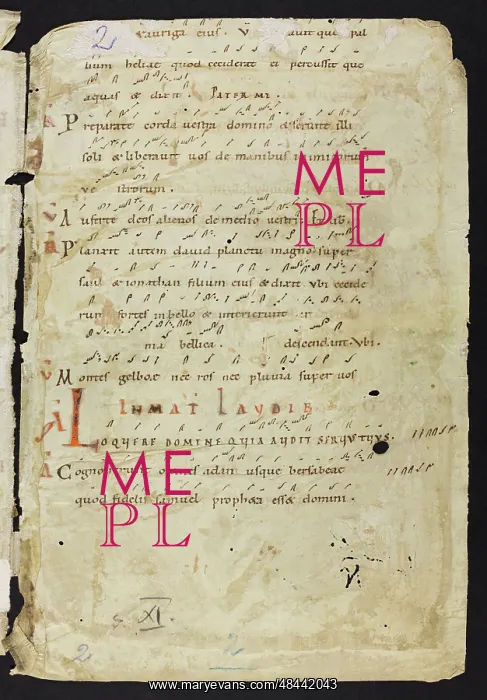 2
auriga eius. V auit que pal
lium heliae quod ceciderat ei percussit que
aquas & dixit. PATER MI.
Preparate corda vestra domino & seruite illi
soli & liberauit uos de manibus inimicorum
ve strorum.
V Auferte deos alienos de medio vestri
Planxit autem dauid planctu magno super
saul & ionathan filium eius & dixit. Vbi cecide
runt fortes in bello & interierunt ar
ma bellica. descendunt. Vbi.
V Montes gelboe nec ros nec pluvia super uos
IN MAT LAUDIB
LOQUERE DOMINE QUIA AUDIT SERVUS TUUS.
Cognouerunt omnes a dan usque bersabeae
quod fidelis samuel propheta esset domini.
s. XI.
2
2
ME
PL
ME
PL
www.maryevans.com/48442043